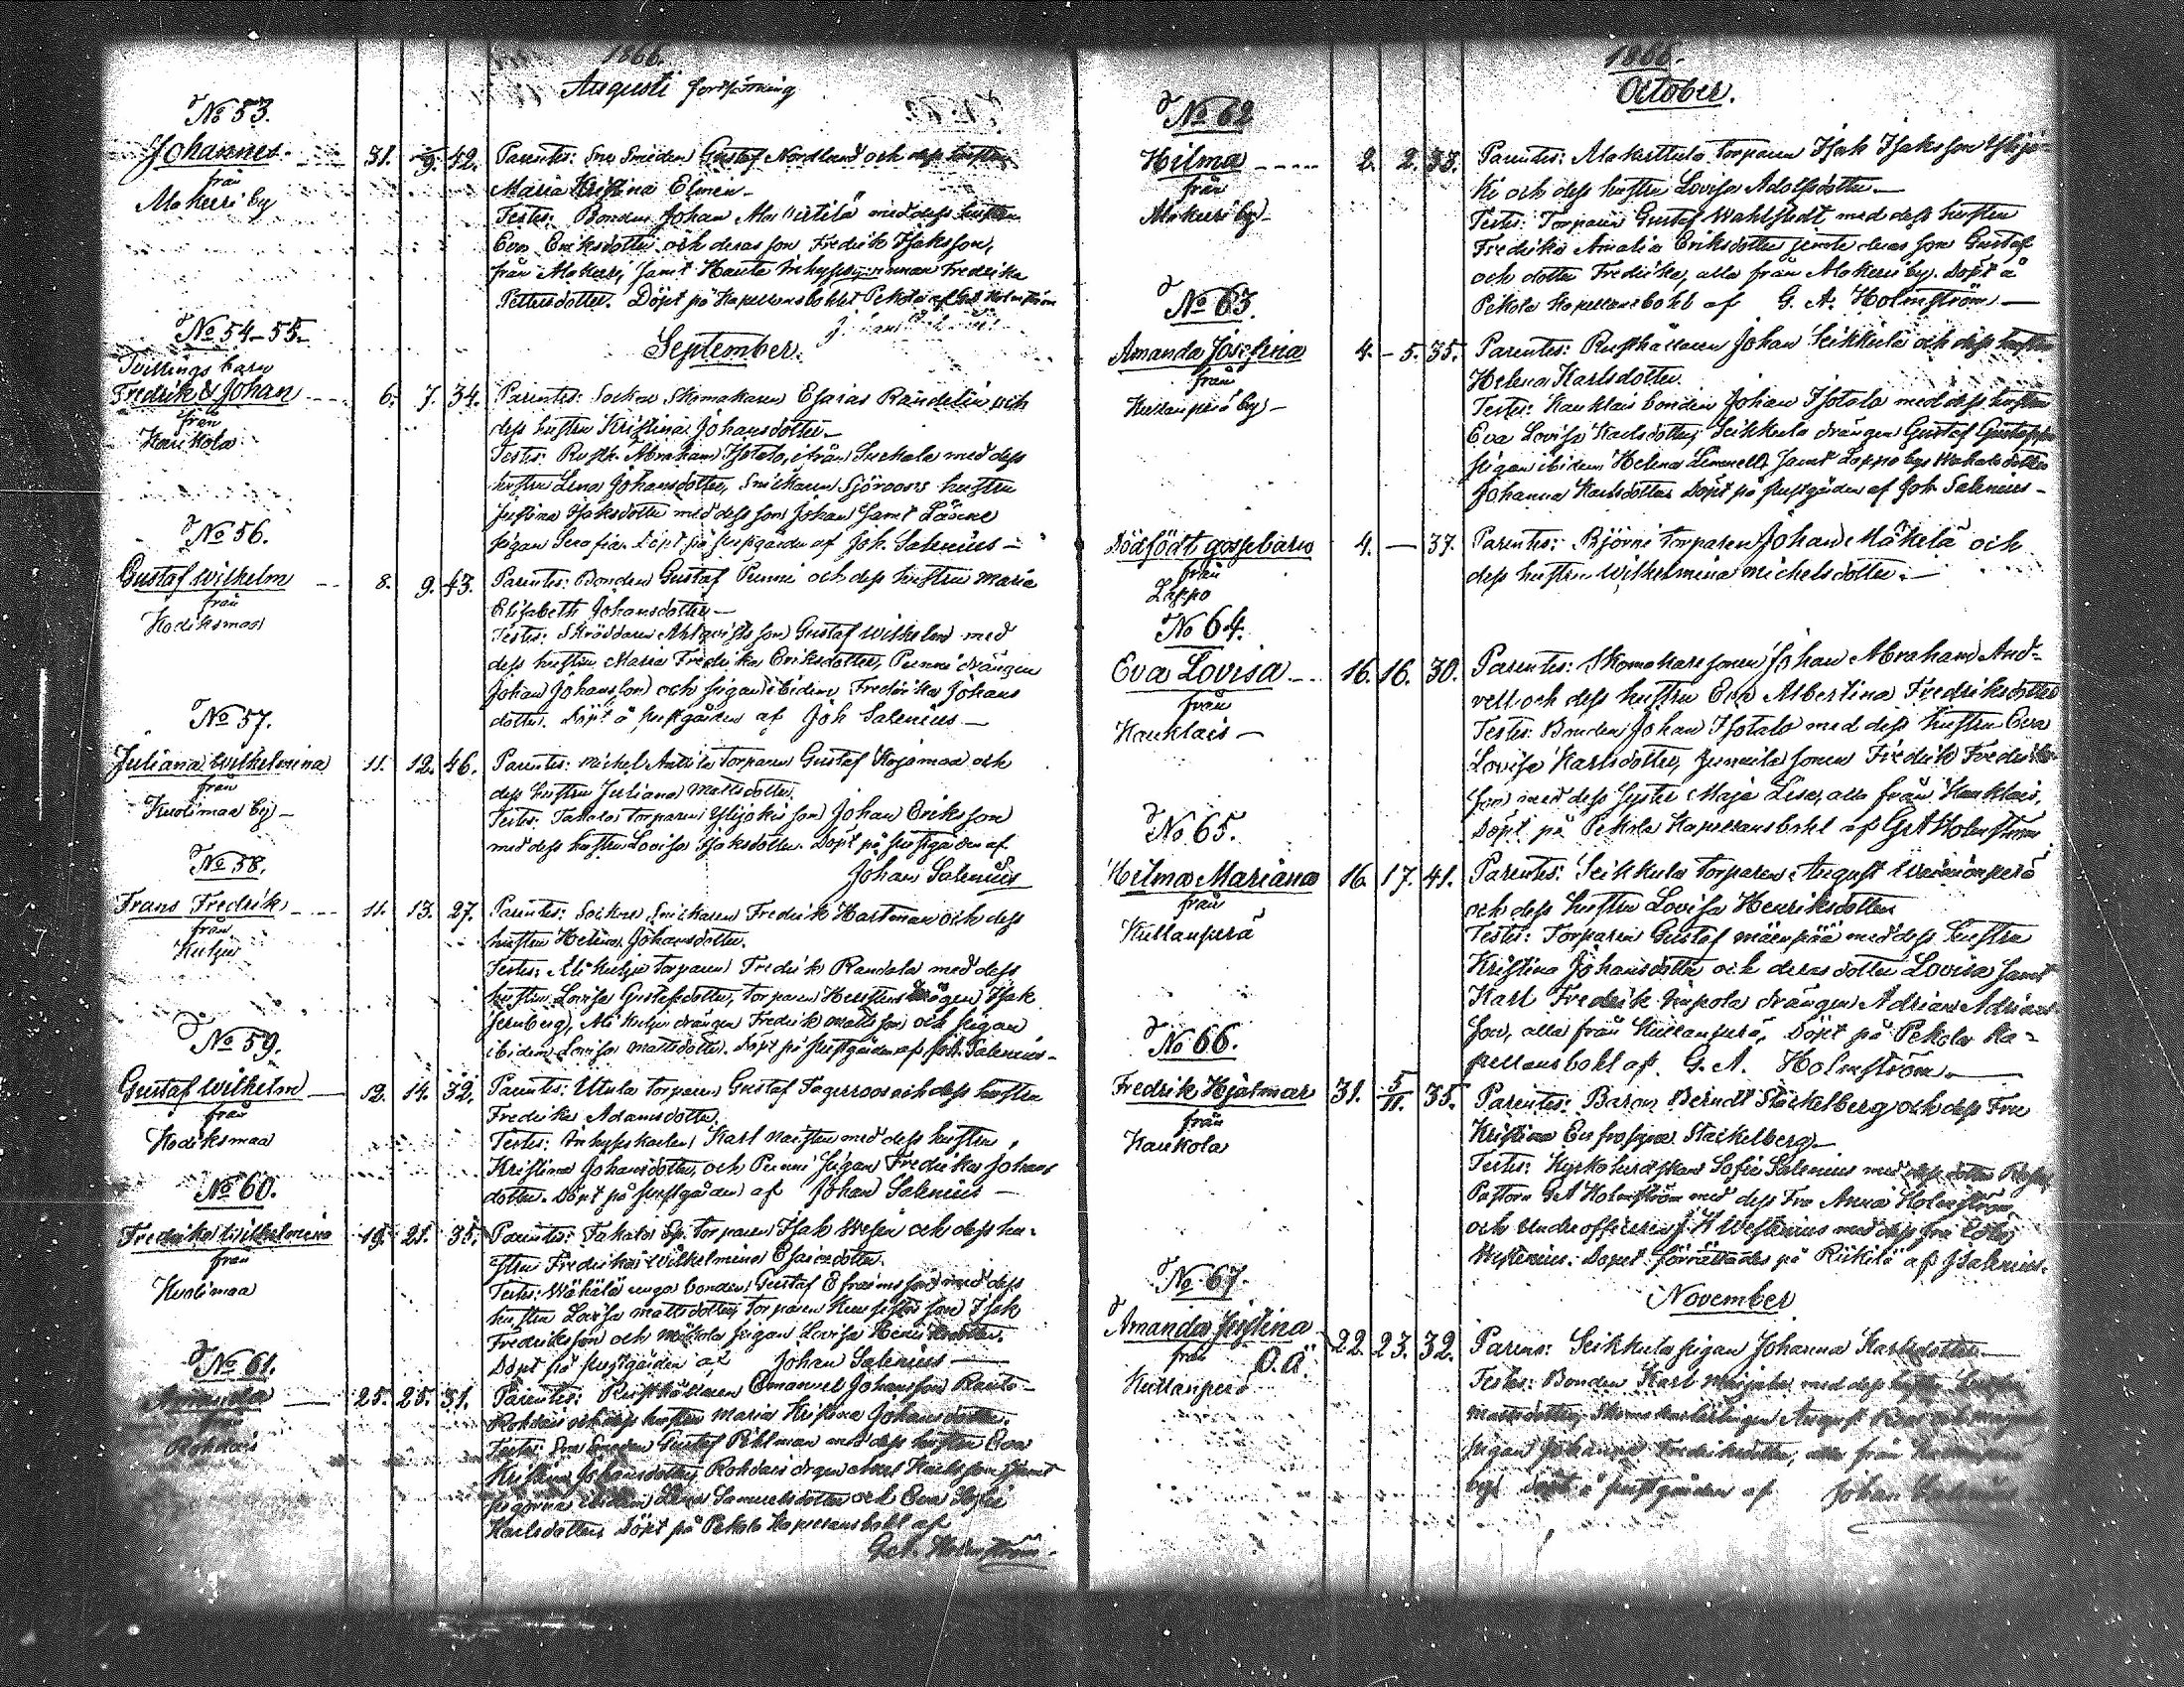 1866.
Augusti fortsättning
No 53.
Johannes 31. 9. 42. Parentes: Sme Smeden Gustaf Nordlund och dess hustru
från Maria Kristina Elmén
Makeri by
Testes: Bonden Johan Ala med dess hustru
Eva Eriksdotter och deras son Fredrik Isaksson,
från Makeri, samt Hanta Inhyses Fredrika
Pettersdotter. Döpt på Kapellansbohlet Pekola af G.A. Holmström
No 54-55.
September.
Tvillings barn
Fredrik & Johan 6. 7. 34. Parentes: Sockne Skomakaren Esaias Randelin och
från dess hustru Kristina Johansdotter
Kaukola
Testes: Rusth. Abraham Isotalo, från med dess
hustru Lena Johansdotter, Snickaren Sjöroos's hustru
Justina Isaksdotter med dess son Johan samt
pigan Serafia. Döpt på prestgården af Joh. Salenius
No 56.
Gustaf Wilhelm 8. 9. 43. Parentes: Bonden Gustaf Punni och dess hustru Maria
från Elisabeth Johansdotter
Kodiksmaa
Testes: Skräddaren Ahlqvists son Gustaf Wilhelm med
dess hustru Maria Fredrika Eriksdotter, Punni drängen
Johan Johansson och pigan ibidem Fredrika Johans
dotter. Döpt å prestgården af Joh Salenius
No 57.
Juliana Wilhelmina 11. 12. 46. Parentes: Mickel Anttila torparen Gustaf Kojomaa och
från dess hustru Juliana Mattsdotter.
Kuolimaa by
Testes: Takala torparen Ylijokis son Johan Eriksson
med dess hustru Lovisa Isaksdotter. Döpt på prestgården af
Johan Salenius
No 58.
Frans Fredrik 11. 13. 27. Parentes: Sockne Snickaren Fredrik Hartman och dess
från hustru Helena Johansdotter.
Kulju
Testes: Ali Kulju torparen Fredrik Randala med dess
hustru Lovisa Gustafsdotter, torparen Isak
Jernberg, Ali Kulju drängen Fredrik Mattsson och pigan
ibidem Lovisa Mattsdotter. Döpt på prestgården af Joh. Salenius
No 59.
Gustaf Wilhelm 12. 14. 32. Parentes: Utula torparen Gustaf Fagerroos och dess hustru
från Fredrika Adamsdotter.
Kodiksmaa
Testes: Inhyseskarlen Karl med dess hustru
Kristina Johansdotter, och Punni pigan Fredrika Johans
dotter. Döpt på prestgården af Johan Salenius
No 60.
Fredrika Wilhelmina 19. 21. 35. Parentes: Takala torparen Isak och dess hu-
från stru Fredrika Wilhelmina Esaiedotter.
Kuolimaa
Testes: Mäkälä unga bonden Gustaf Efraimsson med dess
hustru Lovisa Mattsdotter, torparen son Isak
Fredriksson och pigan Lovisa Henriksdotter.
Döpt på prestgården af Johan Salenius
No 61.
Amanda 25. 25. 31. Parentes: Rusthållaren Emanuel Johansson
från Rohdais och dess hustru Maria Kristina Johansdotter.
Rohdais
Testes: Smeden Gustaf Pihlman med dess hustru Eva
Kristina Johansdotter, Rohdais drgen Karlsson samt
pigorna ibidem Lena Samuelsdotter och Eva Sofie
Karlsdotter. Döpt på Pekola Kapellansbohl af
G.A. Holmström
1866.
October.
No 62
Hilma 2. 2. 38. Parentes: Alakerttula torparen Isak Isaksson Ylijo-
från ki och dess hustru Lovisa Adolfsdotter
Makeri by
Testes: Torparen Gustaf Wahlstedt med dess hustru
Fredrika Amalia Eriksdotter jemte deras son Gustaf
och dotter Fredrika, alla från Makeri by. Döpt å
Pekola Kapellansbohl af G. A. Holmström
No 63.
Amanda Josefina 4. 5. 35. Parentes: Rusthållaren Johan Seikkula och dess hustru
från Helena Karlsdotter.
Kullanperä by
Testes: Hauklais bonden Johan Isotalo med dess hustru
Eva Lovisa Karlsdotter, Seikkula drängen Gustaf Gustafsson
pigan ibidem Helena samt Lappo bys dotter
Johanna Karlsdotter. Döpt på prestgården af Joh. Salenius
Dödfödt gossebarn 4. — 37. Parentes: Björni torparen Johan Mäkelä och
från dess hustru Wilhelmina Michelsdotter.
Lappo
No 64.
Eva Lovisa 16. 16. 30. Parentes: Skomakare sonen Johan Abraham And-
från vell och dess hustru Eva Albertina Fredriksdotter
Hauklais
Testes: Bonden Johan Isotalo med dess hustru Eva
Lovisa Karlsdotter, Junnila sonen Fredrik Fredriks-
son med dess syster Maja Lisa, alla från Hauklais.
Döpt på Pekola Kapellansbohl af G A Holmström
No 65.
Hilma Mariana 16. 17. 41. Parentes: Seikkula torparen August
från och dess hustru Lovisa Henriksdotter
Kullanperä
Testes: Torparen Gustaf Mäenpää med dess hustru
Kristina Johansdotter och deras dotter Lovisa samt
Karl Fredrik drängen Adrian Adrians-
son, alla från Kullanperä. Döpt på Pekola Ka-
pellansbohl af G. A. Holmström
No 66.
Fredrik Hjalmar 31. 5/11. 35. Parentes: Baron Berndt Stackelberg och dess Fru
från Kristina Eufrosyne Stackelberg
Kaukola
Testes: Kyrkoherdskan Sofie Salenius med dess dotter
Pastorn G A Holmström med dess Fru Anna Holmström
och Underofficeren J. H Westenius med dess fru
Westenius. Dopet förrättades på Riikilä af J Salenius.
No 67.
November
Amanda Justina 22. 23. 32. Parens: Seikkula pigan Johanna Karlsdotter
från O. Ä.
Kullanperä
Testes: Bonden Karl Marjala med dess hustru
Mattsdotter, August
pigan Johanna Fredriksdotter, alla från
by. Döpt å prestgården af Johan Salenius